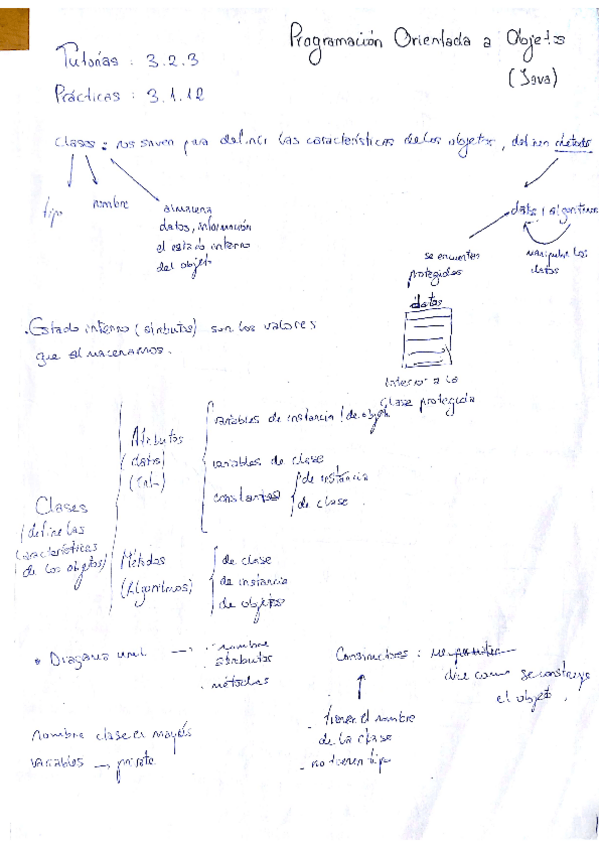 Programación Orientada a Objetos
(Java)
Tutorías : 3.2.3
Prácticas : 3.1.12
Clases : nos sirven para definir las características de los objetos, definen
tipo
nombre
almacena
datos, información
el estado interno
del objeto
datos / algoritmos
se encuentran
protegidos
manipular los
datos
datos
Interior a la
clase protegida
. Estado interno (atributos) son los valores
que almacenamos.
Clases
(define las
características
de los objetos)
Atributos
(datos)
variables de instancia / de objeto
variables de clase
constantes
de instancia
de clase
Métodos
(Algoritmos)
de clase
de instancia
de objeto
• Diagrama uml →
. nombre
. atributos
. métodos
Constructores :
dice como se construye
el objeto.
- tienen el nombre
de la clase
- no tienen tipo
nombre clase en mayús
variables → private